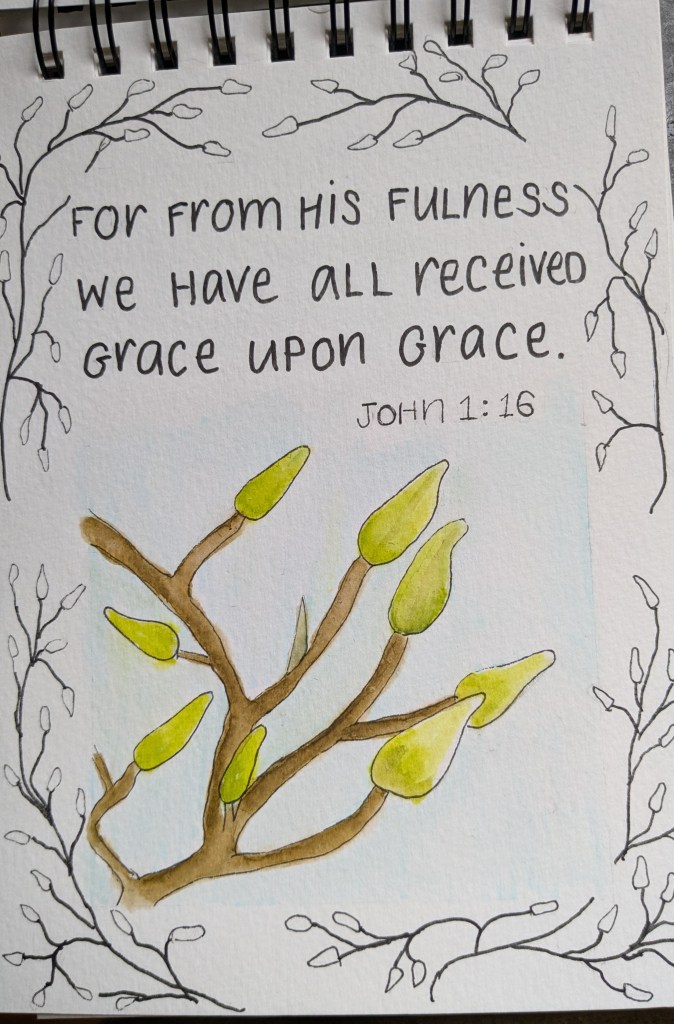 For From His Fulness
we Have all received
Grace upon Grace.
John 1:16